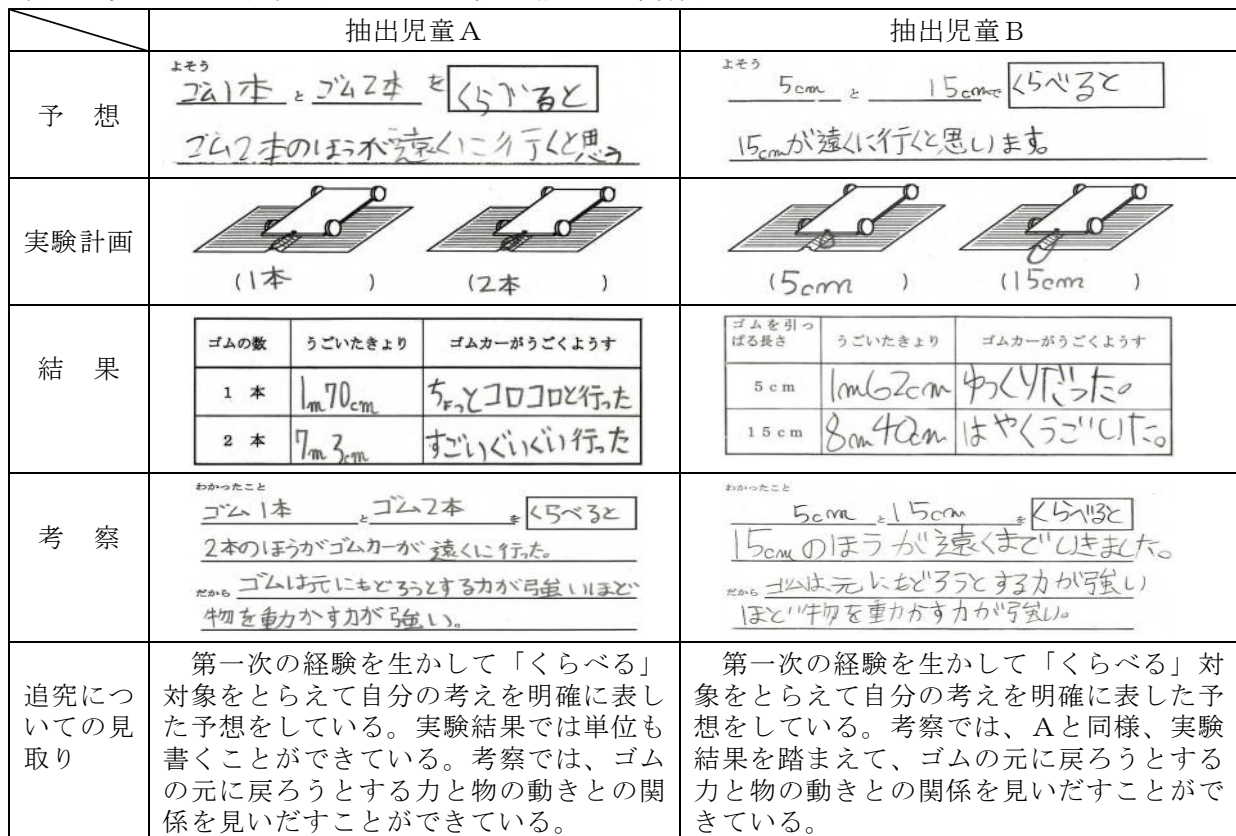 抽出児童A 抽出児童B
予 想
よそう
ゴム1本 と ゴム2本 を くらべると
ゴム2本のほうが遠くに行くと思う
よそう
5cm と 15cmで くらべると
15cmが遠くに行くと思います。
実験計画
(1本 ) (2本 )
(5cm ) (15cm )
結 果
ゴムの数 うごいたきょり ゴムカーがうごくようす
1 本 1m70cm ちょっとコロコロと行った
2 本 7m3cm すごいぐいぐい行った
ゴムを引っ
ぱる長さ うごいたきょり ゴムカーがうごくようす
5cm 1m62cm ゆっくりだった。
15cm 8m40cm はやくうごいた。
考 察
わかったこと
ゴム1本 と ゴム2本 を くらべると
2本のほうがゴムカーが遠くに行った。
だから ゴムは元にもどろうとする力が強いほど
物を動かす力が強い。
わかったこと
5cm と 15cm を くらべると
15cmのほうが遠くまでいきました。
だから ゴムは元にもどろうとする力が強い
ほど物を動かす力が強い。
追究につ
いての見
取り
第一次の経験を生かして「くらべる」
対象をとらえて自分の考えを明確に表し
た予想をしている。実験結果では単位も
書くことができている。考察では、ゴム
の元に戻ろうとする力と物の動きとの関
係を見いだすことができている。
第一次の経験を生かして「くらべる」対
象をとらえて自分の考えを明確に表した予
想をしている。考察では、Aと同様、実験
結果を踏まえて、ゴムの元に戻ろうとする
力と物の動きとの関係を見いだすことがで
きている。